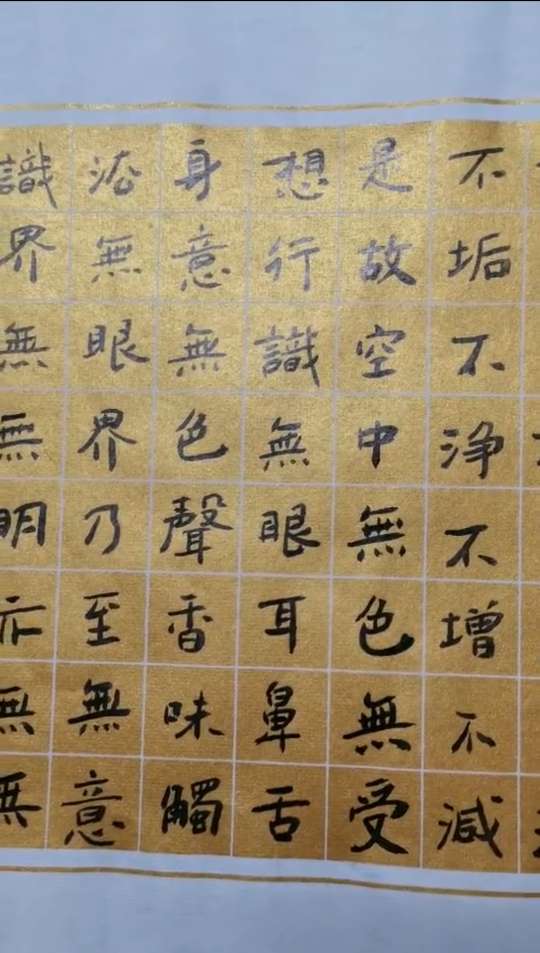 不垢不净不增不減
是故空中無色無受
想行識無眼耳鼻舌
身意無色聲香味觸
法無眼界乃至無意
識界無無明亦無無